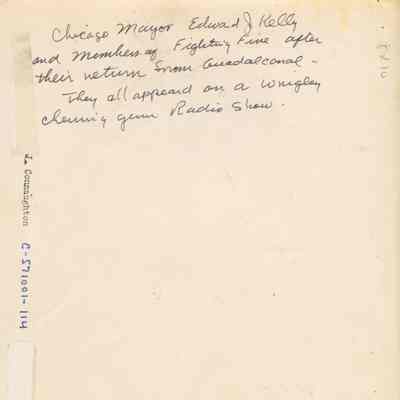 Chicago Mayor Edward J Kelly
and Members of Fighting Five after
their return from Guadalcanal -
They all appeard on a Wrigley
chewing gum Radio Show.
J. Connaughton C-571001-114